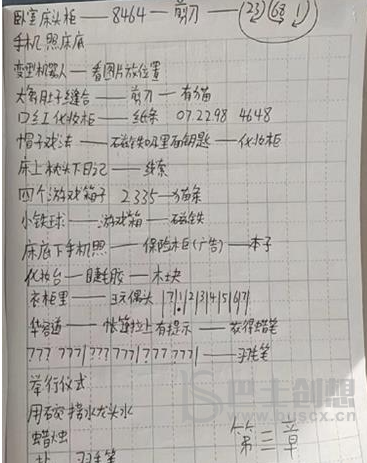 卧室床头柜——8464—剪刀——(23)(68 1)
手机照床底
变型机器人—看图片放位置
大象肚子缝合——剪刀—有猫
口红化妆柜——纸条 07.2298 4648
帽子戏法——石磁铁吸里面钥匙—化妆柜
床上枕头下日记——线索
四个游戏箱子 2335—猫条
小铁球——游戏箱—石磁铁
床底下手机照——保险柜(广告)—本子
化妆台—睫毛胶—木块
衣柜里——玩偶头|7|1|2|3|4|5|6|7|
华容道——帐篷拉上有提示——获得蜡笔
??? ???|??? ???|??? ???|——羽毛笔
举行仪式
用碗接水龙头水
蜡烛
羽毛笔
第三章
巴士创想
www.buscx.cn